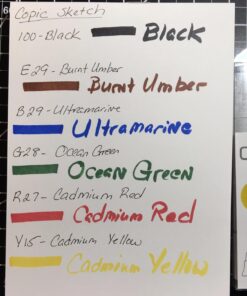 Copic Sketch
100-Black Black
E29-Burnt Umber
Burnt Umber
B29-Ultramarine
Ultramarine
G28-Ocean Green
Ocean Green
R27-Cadmium Red
Cadmium Red
Y15-Cadmium Yellow
Cadmium Yellow